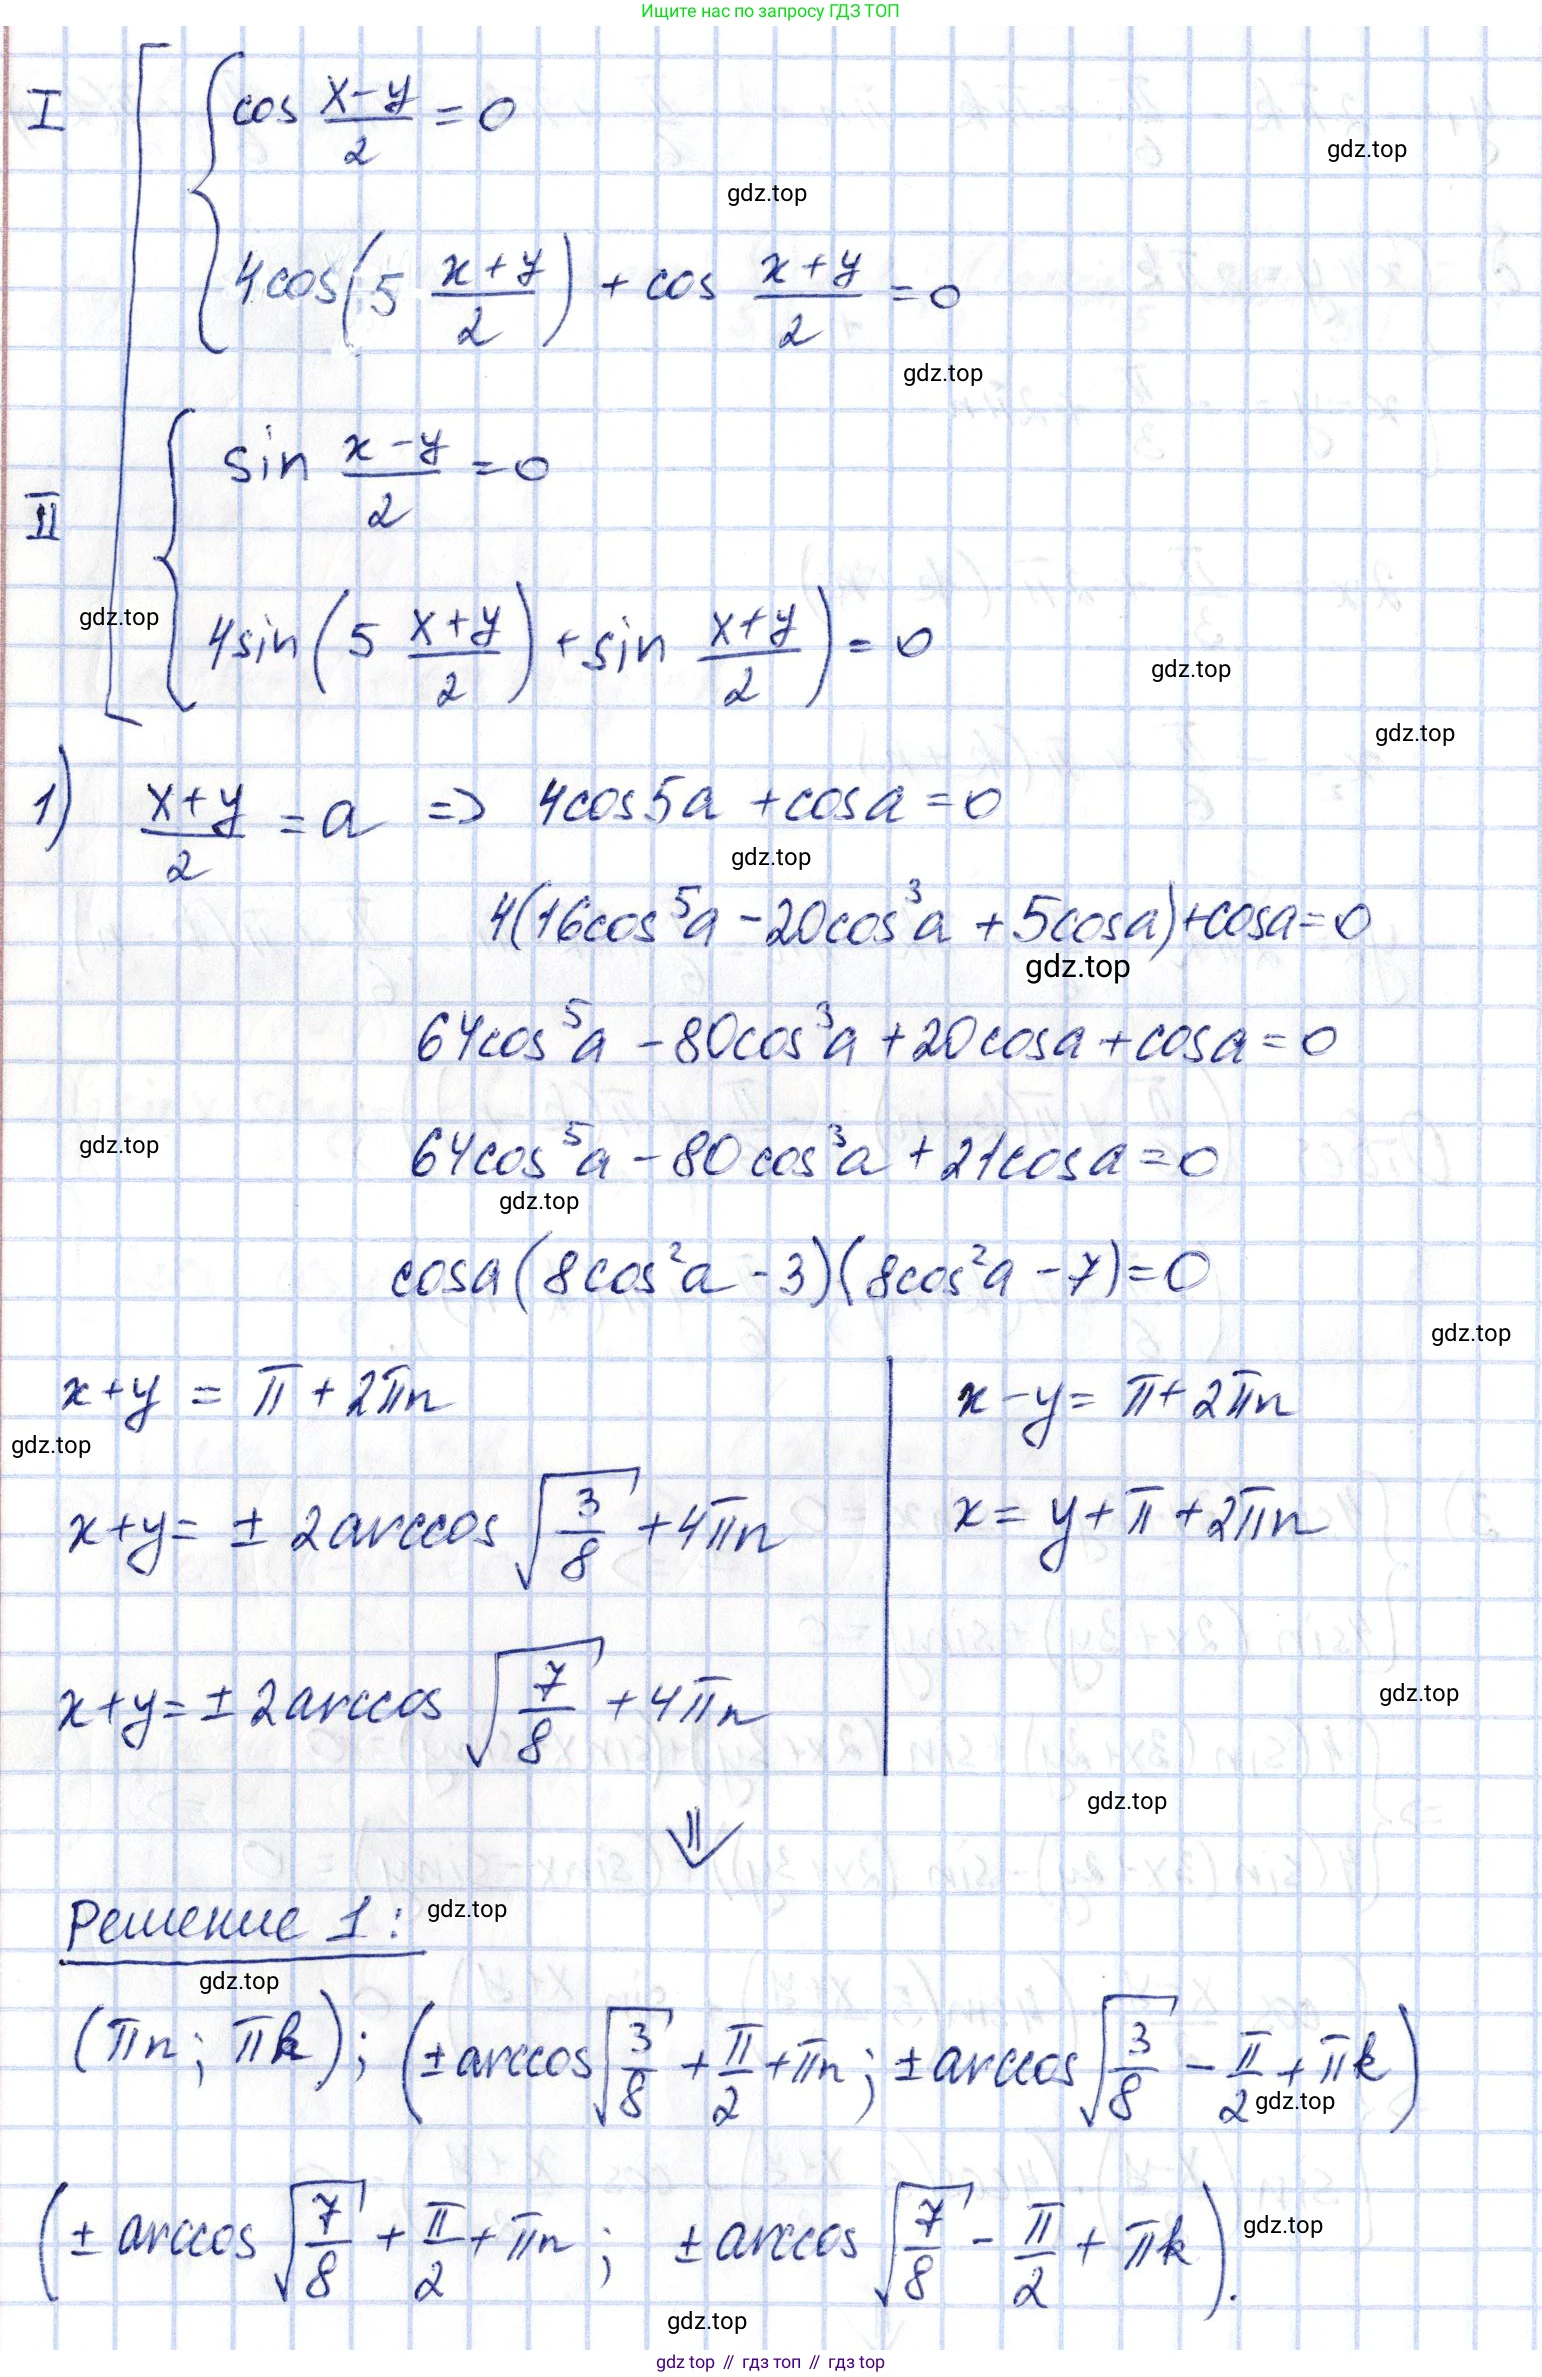 Ищите нас по запросу ГДЗ ТОП
I
cos (x-y)/2 = 0
gdz.top
gdz.top
4cos(5 (x+y)/2) + cos (x+y)/2 = 0
gdz.top
II
sin (x-y)/2 = 0
gdz.top
4sin(5 (x+y)/2) + sin (x+y)/2) = 0
gdz.top
gdz.top
1) (x+y)/2 = a => 4cos5a + cosa = 0
gdz.top
4(16cos⁵a - 20cos³a + 5cosa) + cosa = 0
gdz.top
64cos⁵a - 80cos³a + 20cosa + cosa = 0
gdz.top
64cos⁵a - 80cos³a + 21cosa = 0
gdz.top
cosa(8cos²a - 3)(8cos²a - 7) = 0
gdz.top
x+y = π + 2πn
x-y = π + 2πn
gdz.top
x+y = ± 2arccos √(3/8) + 4πn
x = y + π + 2πn
x+y = ± 2arccos √(7/8) + 4πn
gdz.top
gdz.top
⇓
Решение 1:
gdz.top
gdz.top
(πn; πk); (± arccos √(3/8) + π/2 + πn; ± arccos √(3/8) - π/2 + πk)
gdz.top
(± arccos √(7/8) + π/2 + πn; ± arccos √(7/8) - π/2 + πk).
gdz.top
gdz.top
gdz top // гдз топ // гдз top